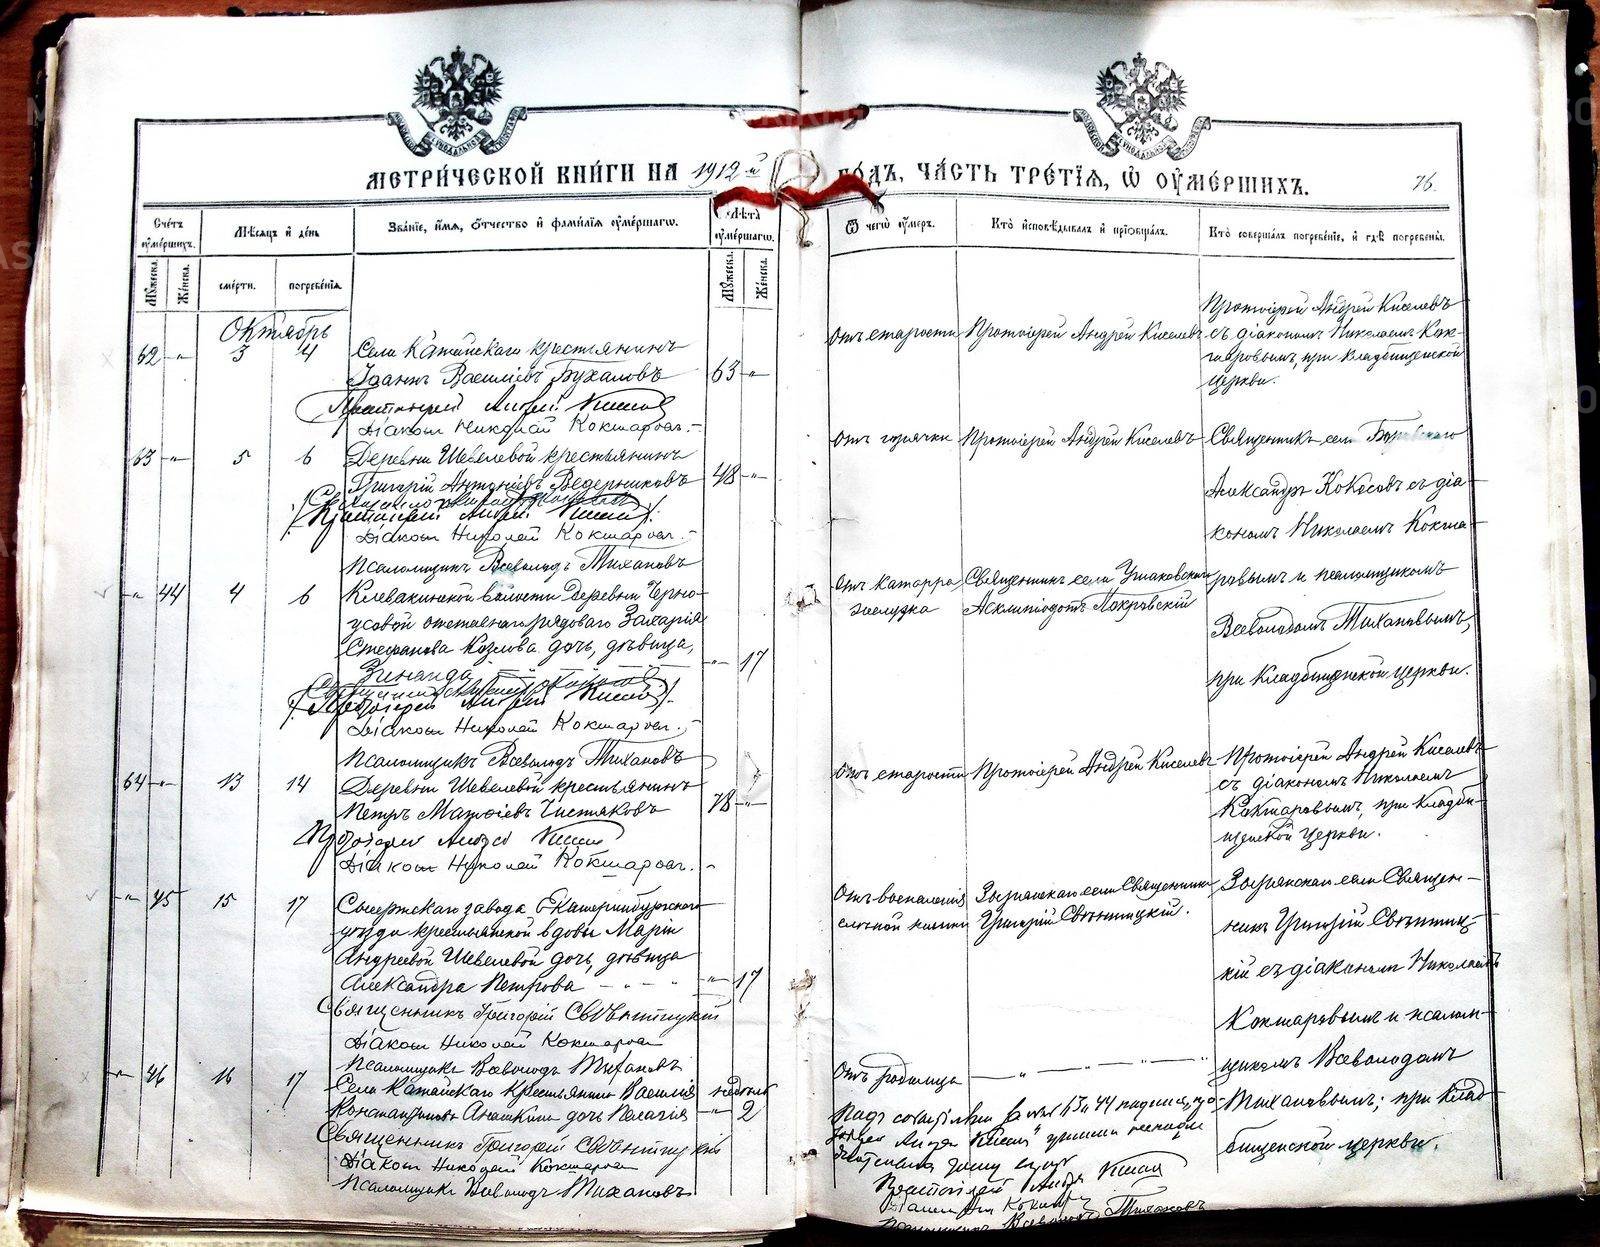 МЕТРИ́ЧЕСКОЙ КНИ́ГИ НА 1912-й ГОДЪ, ЧА́СТЬ ТРЕ́ТІѦ, Ѿ ОУМЕ́РШИХЪ.
76.
Счетъ оумершихъ.
Мѣсяцъ и день
Званіе, имя, отчество и фамилія оумершагѡ.
Лѣта оумершагѡ.
Ѿ чегѡ оумеръ.
Кто исповѣдывалъ и пріобщалъ.
Кто совершалъ погребеніе, и гдѣ погребены.
Мужеска.
Женска.
смерти.
погребенія
Мужеска.
Женска.
Октябрь
62 - " 3 4
Села Катайскаго крестьянинъ
Іоаннъ Василіевъ Бухаловъ
63 - "
Отъ старости
Протоіерей Андрей Киселевъ
Протоіерей Андрей Киселевъ
съ діакономъ Николаемъ Кок-
шаровымъ, при кладбищенской
церкви.
Протоіерей Андрей Киселевъ
Діаконъ Николай Кокшаровъ.
63 - " 5 6
Деревни Шевелевой крестьянинъ
Григорій Антоніевъ Ведерниковъ
48 - "
Отъ горячки
Протоіерей Андрей Киселевъ
Священникъ села
Александръ Кокосовъ съ діа-
кономъ Николаемъ Кокша-
ровымъ и псаломщикомъ
Всеволодомъ Тихановымъ,
при кладбищенской церкви.
Протоіерей Андрей
Діаконъ Николай Кокшаровъ.
Псаломщикъ Всеволодъ Тихановъ
" - 44 4 6
Клевакинской волости деревни Черно-
усовой отставнаго рядоваго Захарія
Стефанова Козлова дочь, дѣвица,
Зинаида
" - 17
Отъ катарра
желудка
Священникъ села Ушаковскаго
Асклипіодотъ Покровскій
Протоіерей Андрей
Діаконъ Николай Кокшаровъ.
Псаломщикъ Всеволодъ Тихановъ
64 - " 13 14
Деревни Шевелевой крестьянинъ
Петръ Матѳіевъ Чистяковъ
78 - "
Отъ старости
Протоіерей Андрей Киселевъ
Протоіерей Андрей Киселевъ
съ діакономъ Николаемъ
Кокшаровымъ, при кладби-
щенской церкви.
Протоіерей Андрей
Діаконъ Николай Кокшаровъ.
" - 45 15 17
Сысертскаго завода Екатеринбургскаго
уѣзда крестьянской вдовы Маріи
Андреевой Шевелевой дочь, дѣвица
Александра Петрова
" - 17
Отъ воспаленія
слѣпой кишки
Зырянскаго села Священникъ
Григорій Свѣтицкій.
Зырянскаго села Священ-
никъ Григорій Свѣтиц-
кій съ діакономъ Николаемъ
Кокшаровымъ и псалом-
щикомъ Всеволодомъ
Тихановымъ; при клад-
бищенской церкви.
Священникъ Григорій Свѣтицкій
Діаконъ Николай Кокшаровъ
Псаломщикъ Всеволодъ Тихановъ
" - 46 16 17
Села Катайскаго крестьянина Василія
Константинова дочь Пелагія
недѣль
" - 2
Отъ родимца
- " - " -
Священникъ Григорій Свѣтицкій
Діаконъ Николай Кокшаровъ
Псаломщикъ Всеволодъ Тихановъ
Протоіерей Андрей
Псаломщикъ Всеволодъ Тихановъ